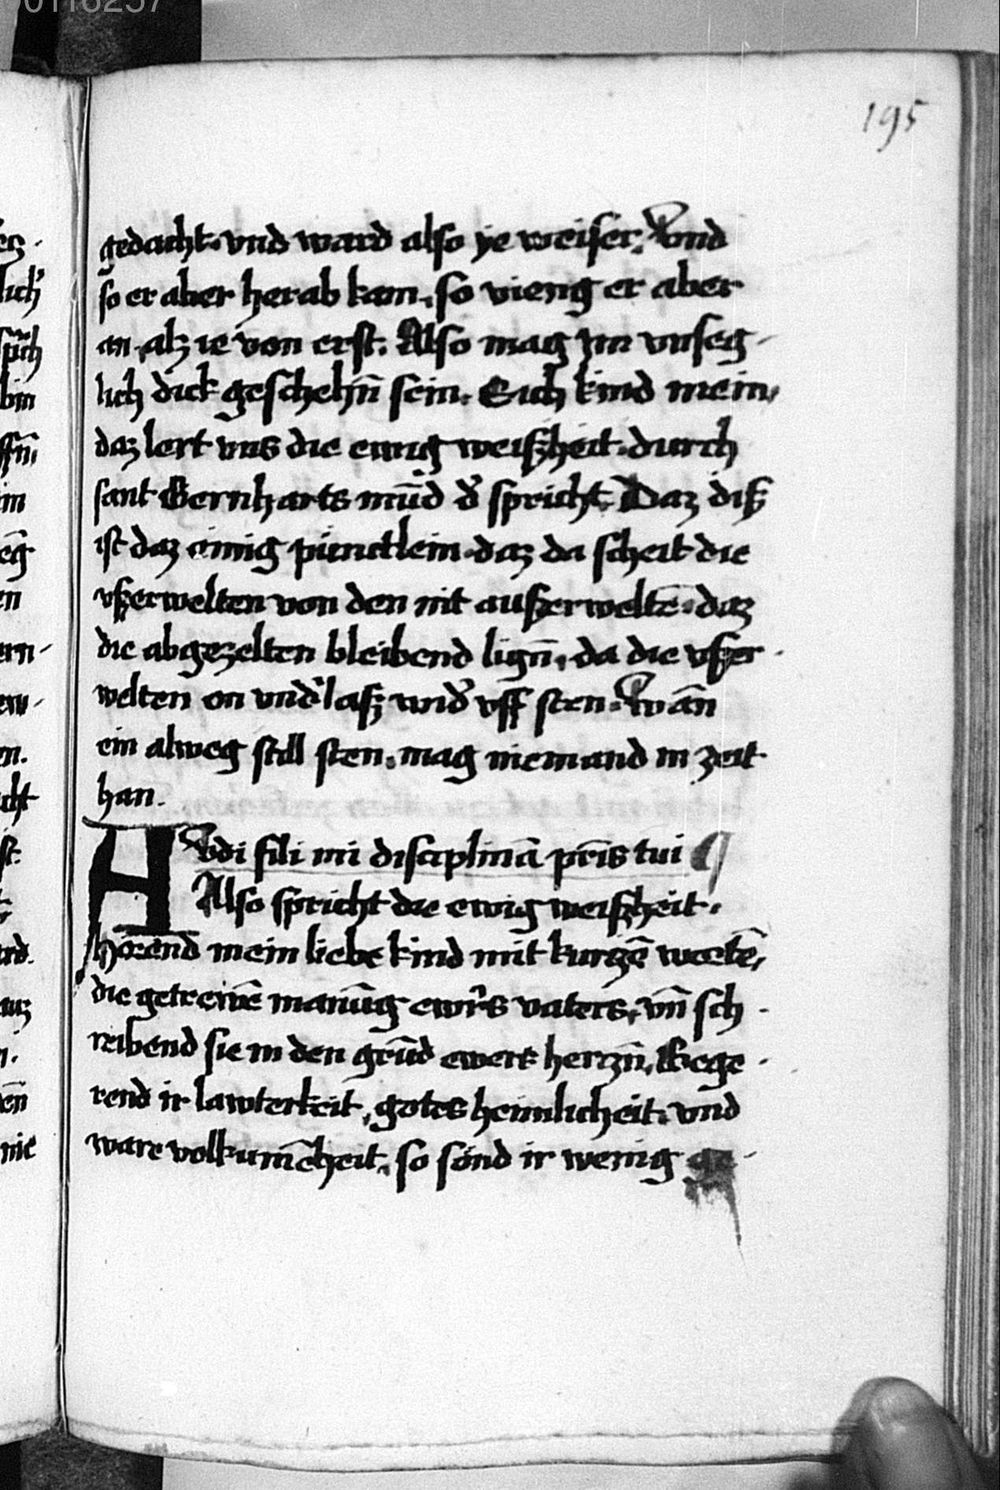 195
gedacht. vnd ward also ye weiser. Vnd
so er aber herab kam, so vieng er aber
an, alz ie von erst. Also mag im vnseg-
lich dick geschehn̄ sein. Sich kind mein,
daz lert vns die ewig weißheit. durch
sant Bernharts mūd d' spricht. Daz diß
ist daz einig pünctlein. daz da scheit die
vßerwelten von den nit außerweltē. daz
die abgezelten bleibend lign̄, da die vßer-
welten on vnd'laß wid' vff sten. Wān
ein alweg still sten, mag niemand in zeit
han.
AVdi fili mi disciplinā pr̄is tui
Also spricht die ewig weißheit.
hörend mein liebe kind mit kurtzē wortē,
die getrewē manūg ewr̄s vaters, vn̄ sch-
reibend sie in den grūd ewers hertzn̄, Bege-
rend ir lawterkeit, gotes heimlicheit. vnd
ware volkumēheit, so sönd ir wenig ge-